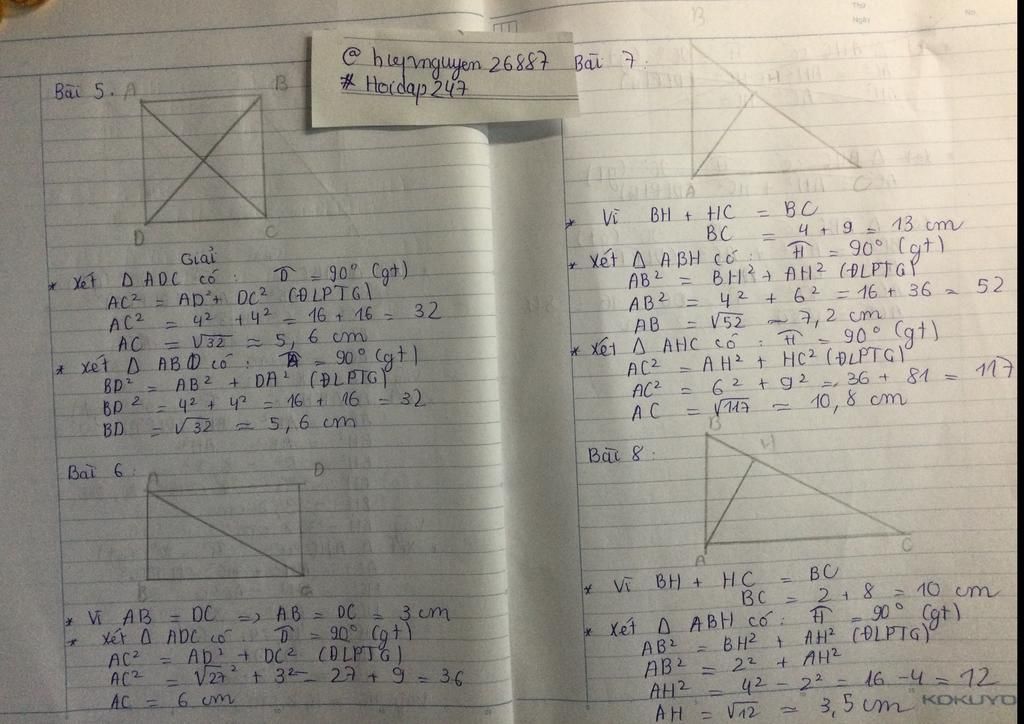 @ huynguyen26887
# Hoidap247
Bài 5.
A
B
D
C
Giải
* Xét Δ ADC có : D̂ = 90° (gt)
AC² = AD² + DC² (ĐLPTG)
AC² = 4² + 4² = 16 + 16 = 32
AC = √32 ≈ 5,6 cm
* Xét Δ ABD có : Â = 90° (gt)
BD² = AB² + DA² (ĐLPTG)
BD² = 4² + 4² = 16 + 16 = 32
BD = √32 ≈ 5,6 cm
Bài 6 :
A
D
B
C
* Vì AB = DC => AB = DC = 3 cm
* Xét Δ ADC có : D̂ = 90° (gt)
AC² = AD² + DC² (ĐLPTG)
AC² = √27² + 3² = 27 + 9 = 36
AC = 6 cm
Bài 7 :
B
A
C
* Vì BH + HC = BC
BC = 4 + 9 = 13 cm
* Xét Δ ABH có : Ĥ = 90° (gt)
AB² = BH² + AH² (ĐLPTG)
AB² = 4² + 6² = 16 + 36 = 52
AB = √52 ≈ 7,2 cm
* Xét Δ AHC có : Ĥ = 90° (gt)
AC² = AH² + HC² (ĐLPTG)
AC² = 6² + 9² = 36 + 81 = 117
AC = √117 ≈ 10,8 cm
Bài 8 :
B
H
A
C
* Vì BH + HC = BC
BC = 2 + 8 = 10 cm
* Xét Δ ABH có : Ĥ = 90° (gt)
AB² = BH² + AH² (ĐLPTG)
AB² = 2² + AH²
AH² = 4² - 2² = 16 - 4 = 12
AH = √12 ≈ 3,5 cm
KOKUYO